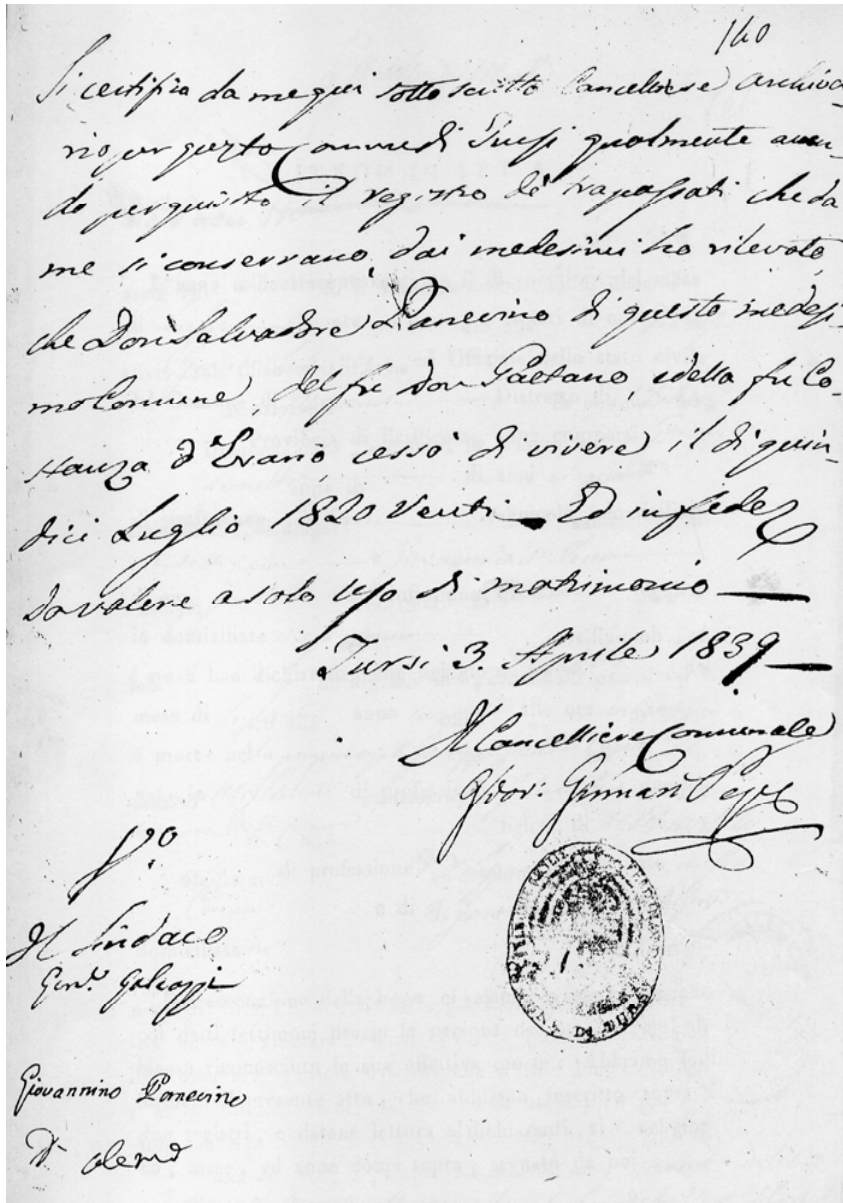 140
Si certifica da me qui sotto scritto Cancelliere archiva-
rio per questo Comune di Tursi qualmente aven-
do perquisito il registro de' trapassati che da
me si conservano, dai medesimi ho rilevato,
che Don Salvadore Panevino di questo medesi-
mo Comune, del fu don Gaetano e della fu Co-
stanza d'Erano, cessò di vivere, il di quin-
dici Luglio 1820 Venti — Ed in fede
da valere a solo uso di matrimonio —
Tursi 3. Aprile 1839 —
Il Cancelliere Comunale
Giov: Gennari
Il Sindaco
Giovannino Panevino